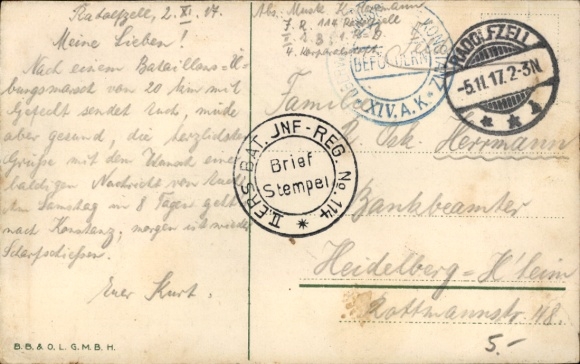 Radolfzell, 2. XI. 17.
Meine Lieben!
Nach einem Bataillons-Ü-
bungsmarsch von 20 km mit
Gefecht sendet Euch, müde
aber gesund, die herzlichsten
Grüße mit dem Wunsch einer
baldigen Nachricht von Euch
Am Samstag in 8 Tagen geht
nach Konstanz; morgen ist wieder
Scharfschießen.
Euer Kurt.
B.B. & O. L. G.M.B.H.
Abs. Musk. K. Herrmann
J.R. 114 Radolfzell
4. Korporalschaft
KONSTANZ
BEFÖRDERN
XIV. A. K.
RADOLFZELL
-5.11.17.2-3N
Familie
Herrmann
Bankbeamter
Heidelberg-H'heim
Rottmannstr. 48.
II. ERS. BAT. JNF.-REG. No 114
Brief
Stempel
5.-